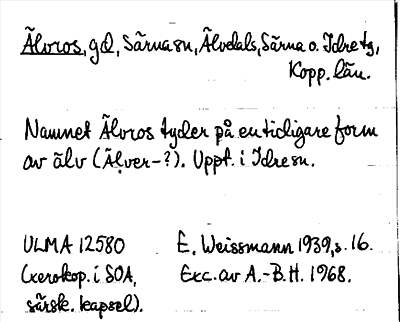 Älvros, gd, Särna sn, Älvdals, Särna o. Idre tg,
Kopp. län.
Namnet Älvros tyder på en tidigare form
av älv (Äḷver-?). Uppt. i Idre sn.
ULMA 12580 E. Weissmann 1939, s. 16.
(xerokop. i SOA, Exc. av A.-B.H. 1968.
särsk. kapsel).